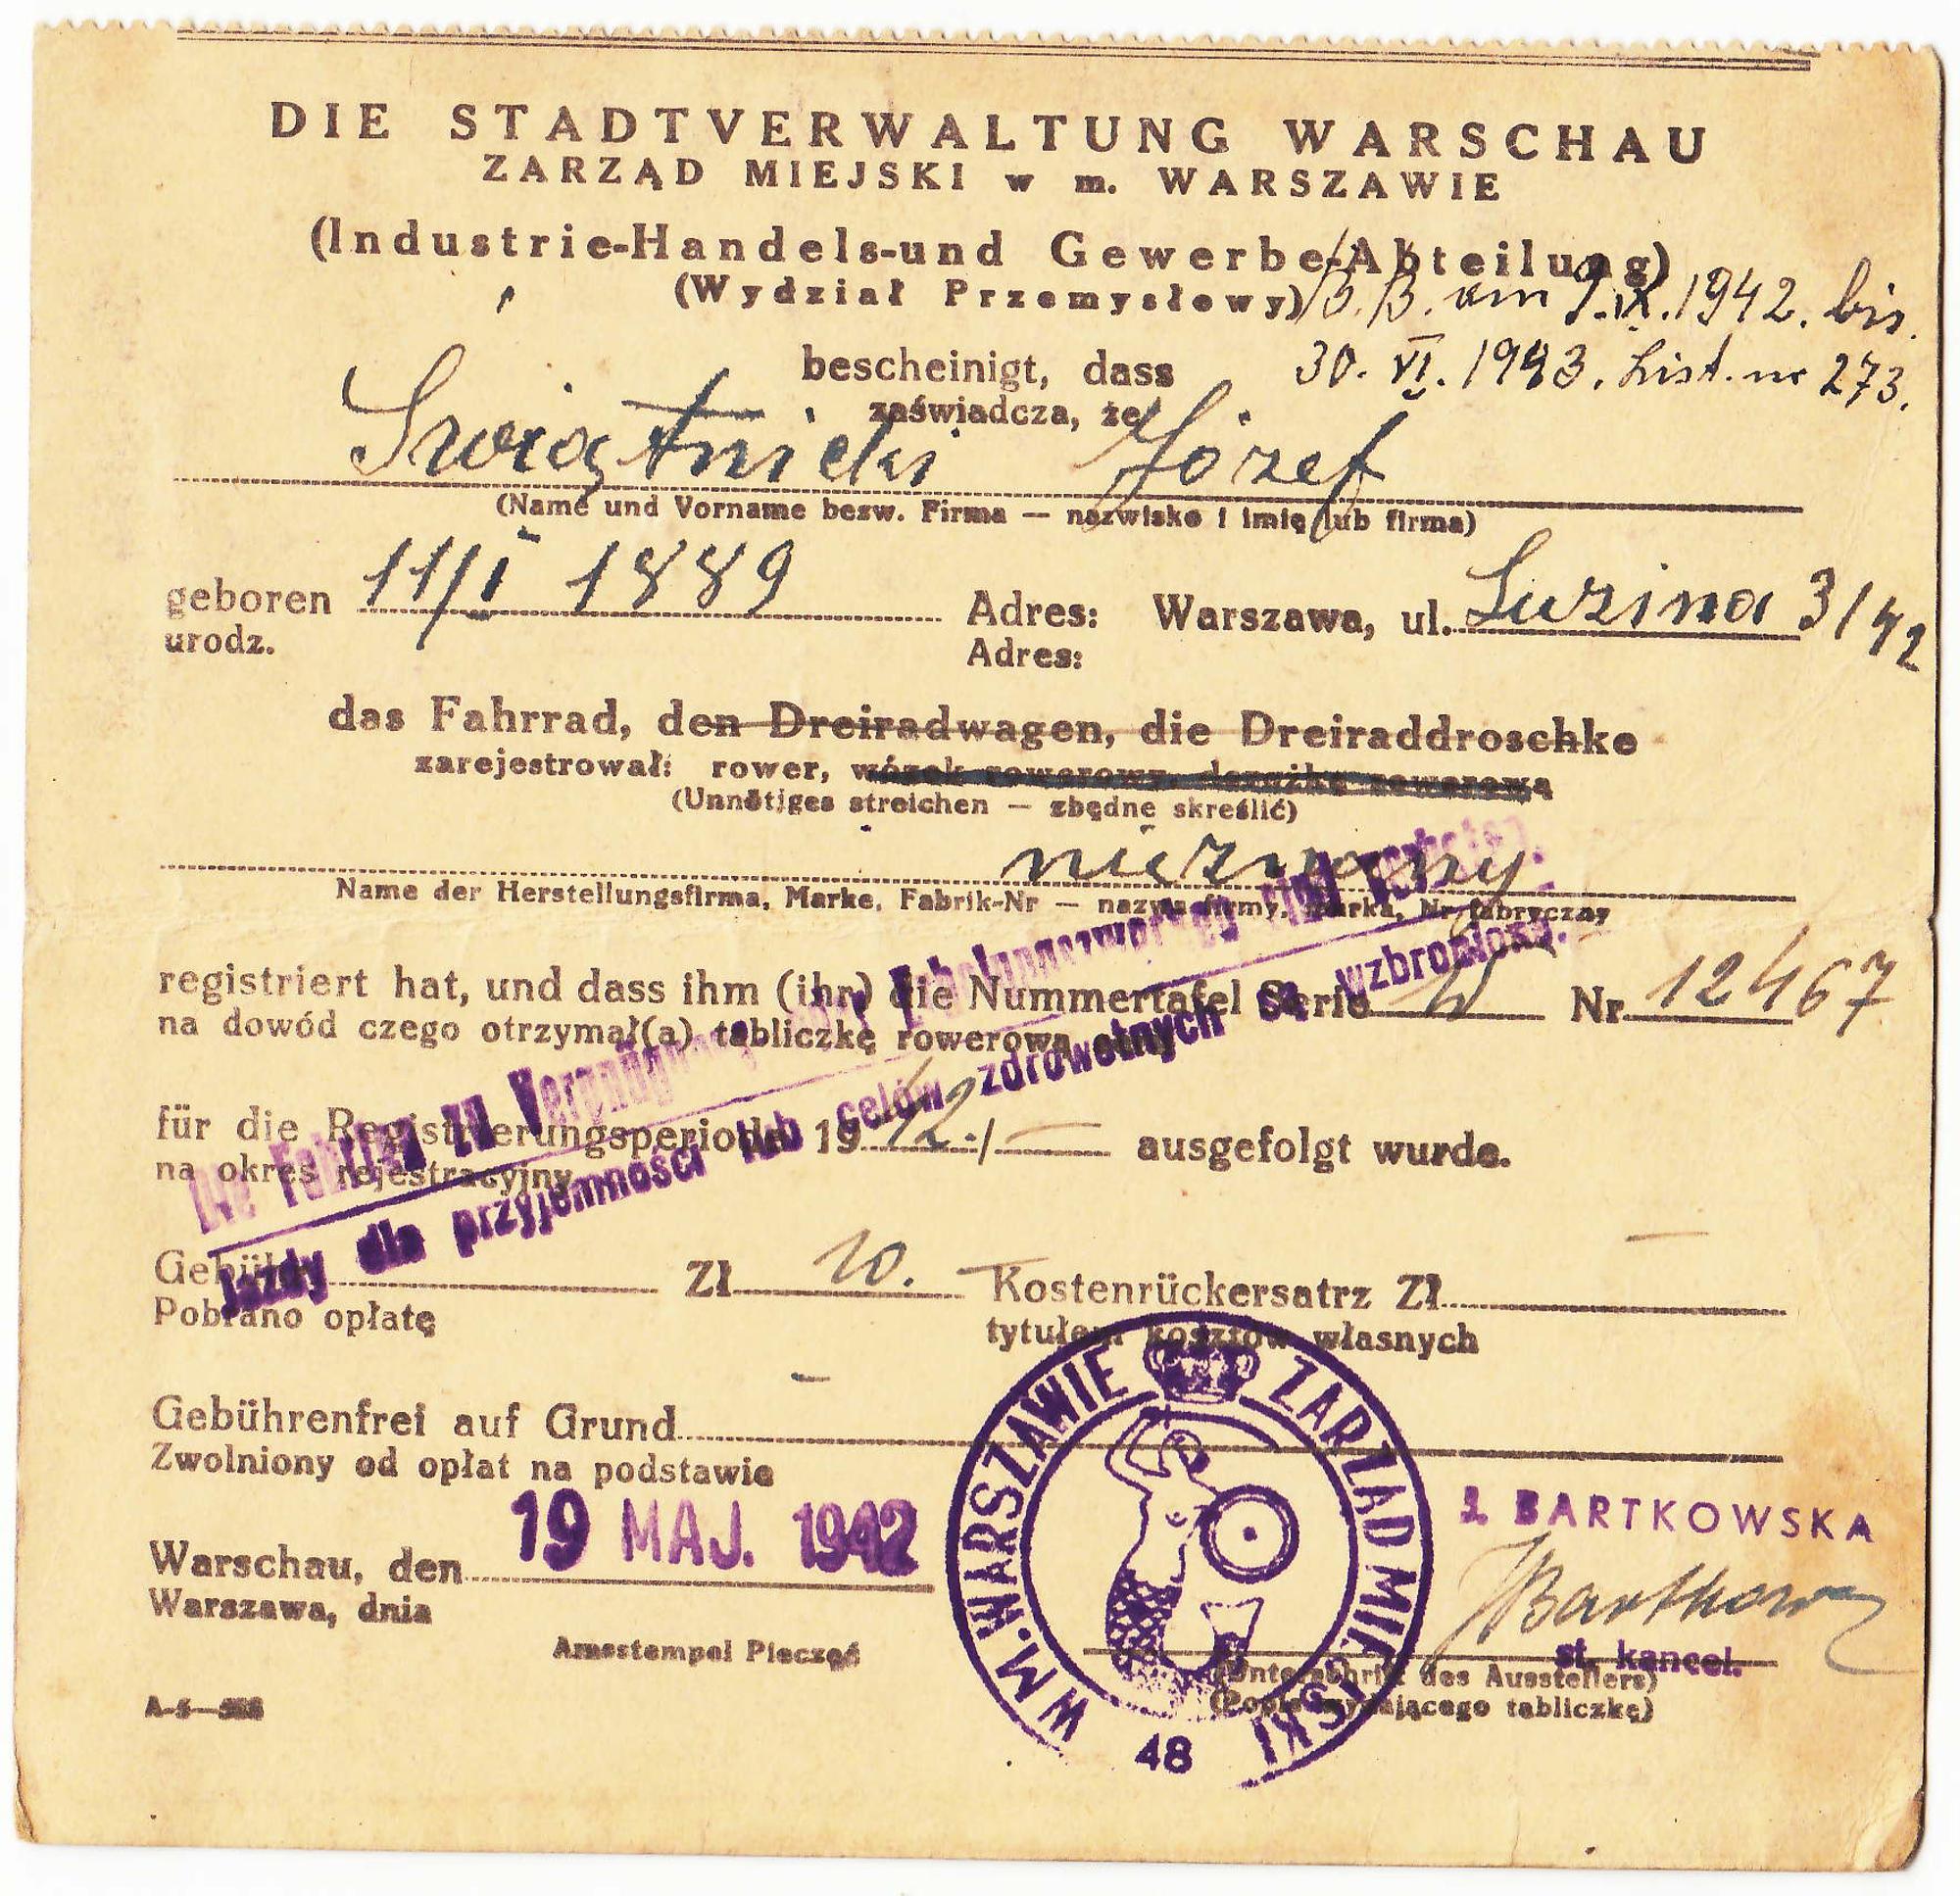 DIE STADTVERWALTUNG WARSCHAU
ZARZĄD MIEJSKI w m. WARSZAWIE
(Industrie-Handels-und Gewerbe-Abteilung)
(Wydział Przemysłowy)
B.B. am 9.IX.1942. bis.
30. VI. 1943. List. nr 273.
bescheinigt, dass
zaświadcza, że
Swiątnicki Józef
(Name und Vorname bezw. Firma — nazwisko i imię lub firma)
geboren 11/I 1889 Adres: Warszawa, ul. 3/42
urodz. Adres:
das Fahrrad, den Dreiradwagen, die Dreiraddroschke
zarejestrował: rower, wózek rowerowy, dorożkę rowerową
(Unnötiges streichen — zbędne skreślić)
nieznany
Name der Herstellungsfirma, Marke, Fabrik-Nr — nazwa firmy, marka, Nr fabryczny
registriert hat, und dass ihm (ihr) die Nummertafel Serie W Nr 12467
na dowód czego otrzymał(a) tabliczkę rowerową
für die Registrierungsperiode 1942./— ausgefolgt wurde.
na okres rejestracyjny
Die Fahrten zu Vergnügungs- oder Erholungszwecken sind verboten.
Jazdy dla przyjemności lub celów zdrowotnych są wzbronione.
Gebühr Zł 10. — Kostenrückersatrz Zł —
Pobrano opłatę tytułem kosztów własnych
Gebührenfrei auf Grund —
Zwolniony od opłat na podstawie
Warschau, den 19 MAJ. 1942
Warszawa, dnia
Amsstempel Pieczęć
ZARZĄD MIEJSKI W M. WARSZAWIE
48
J. BARTKOWSKA
st. kancel.
(Unterschrift des Ausstellers)
(Podpis wydającego tabliczkę)